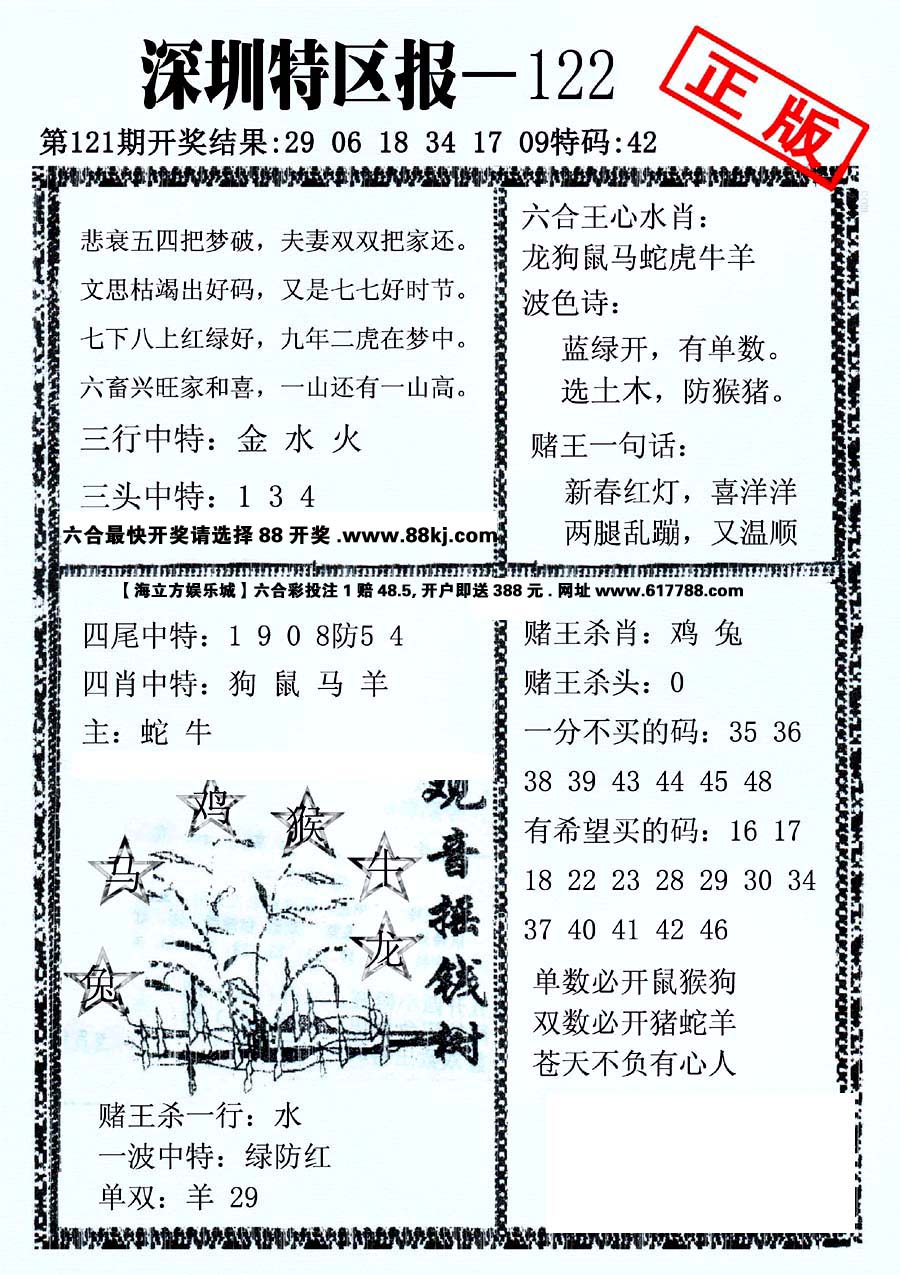 深圳特区报—122
正版
第121期开奖结果:29 06 18 34 17 09特码:42
悲衰五四把梦破，夫妻双双把家还。
文思枯竭出好码，又是七七好时节。
七下八上红绿好，九年二虎在梦中。
六畜兴旺家和喜，一山还有一山高。
三行中特：金 水 火
三头中特：1 3 4
六合最快开奖请选择88开奖.www.88kj.com
六合王心水肖：
龙狗鼠马蛇虎牛羊
波色诗：
蓝绿开，有单数。
选土木，防猴猪。
赌王一句话：
新春红灯，喜洋洋
两腿乱蹦，又温顺
【海立方娱乐城】六合彩投注1赔48.5,开户即送388元.网址www.617788.com
四尾中特：1 9 0 8防5 4
四肖中特：狗 鼠 马 羊
主：蛇 牛
鸡
猴
马
牛
龙
兔
观音摇钱树
赌王杀一行：水
一波中特：绿防红
单双：羊 29
赌王杀肖：鸡 兔
赌王杀头：0
一分不买的码：35 36
38 39 43 44 45 48
有希望买的码：16 17
18 22 23 28 29 30 34
37 40 41 42 46
单数必开鼠猴狗
双数必开猪蛇羊
苍天不负有心人